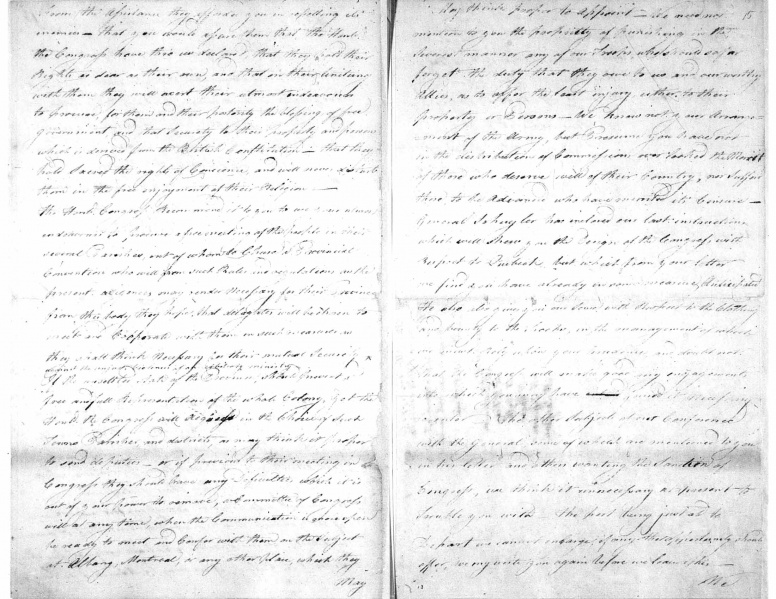 from the assistance they afforded you in repelling its
enemies — That you would assure them that the Honble
the Congress have thro us declared, that they hold their
Rights as dear as their own, and that on their uniting
with them they will exert their utmost endeavours
to procure, for them and their posterity the blessing of free
government and that Security to their property and persons
which is derived from the British Constitution — that they
hold Sacred the rights of Conscience, and will never disturb
them in the free enjoyment of their Religion —
The Honle Congress Recommend it to you to use your utmost
endeavours to procure a free meeting of the people in their
several Parishes, out of whom to Choose a Provincial
Convention who will from such Rules and regulations as the
present may render Necessary for their Province
from this body they hope that delegates will be chosen to
meet and Cooperate with them in such measures as
they shall think Necessary for their mutual Security
against the a ministry
If the unsettled State of the Province, should prevent a
free and full the whole Colony, yet the
Honle the Congress will in the Choice of such
Towns Parishes and districts as may think it proper
to send deputies — or if previous to their meeting in
Congress they should have any difficulties which it is
out of your power to remove, a Committee of Congress
will at any time, when the Communication is open
be ready to meet and Confer with them on the Subject
at Albany, Montreal, or any other place, which they
May
15
May think proper to Appoint — We need not
mention to you the propriety of punishing in the
severest manner any of our Troops, who should so far
forget the duty that they owe to us and our worthy
Allies, as to offer the least injury either to their
property or Persons — We know not your Arrange-
ment of the Army, but presume you have not
in the distribution of Commissions over looked the Merit
of those who deserve well of their Country, nor suffered
those to be Advanced who have merited its Censure —
General Schuyler has inclosed our last instructions
which will shew you the Design of the Congress with
Respect to Quebeck but which from your letter
we find you have already in some measure Anticipated
He also with Respect to the Clothing
and bounty to the Troops, in the management of which
we must rely upon your prudence, and doubt not
that the Congress will make good any engagements
into which you may have found it Necessary
to enter — The other Subject of our Conference
with the General some of which are mentioned to you
in his letter and others wanting the Sanction of
Congress, we think it unnecessary at present to
trouble you with — The post being just about to
Depart we cannot engage if any thing should
offer, but may write you again before we leave this —
We